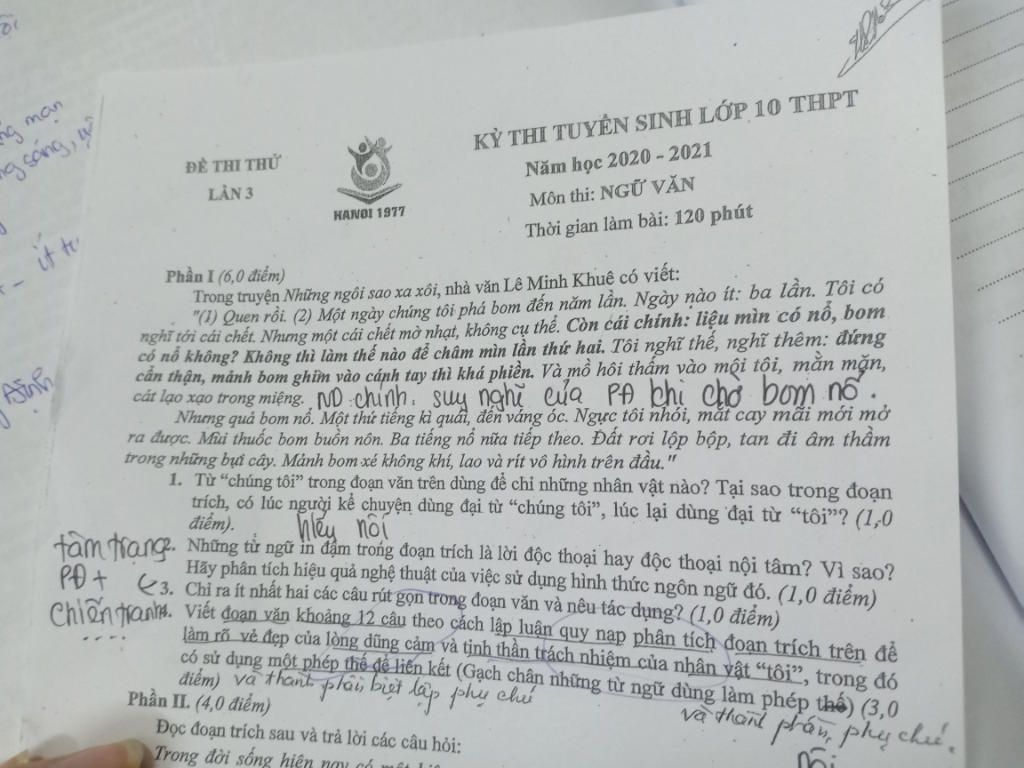 ĐỀ THI THỬ
LẦN 3
HANOI 1977
KỲ THI TUYỂN SINH LỚP 10 THPT
Năm học 2020 - 2021
Môn thi: NGỮ VĂN
Thời gian làm bài: 120 phút
Phần I (6,0 điểm)
Trong truyện Những ngôi sao xa xôi, nhà văn Lê Minh Khuê có viết:
"(1) Quen rồi. (2) Một ngày chúng tôi phá bom đến năm lần. Ngày nào ít: ba lần. Tôi có
nghĩ tới cái chết. Nhưng một cái chết mờ nhạt, không cụ thể. Còn cái chính: liệu mìn có nổ, bom
có nổ không? Không thì làm thế nào để châm mìn lần thứ hai. Tôi nghĩ thế, nghĩ thêm: đứng
cẩn thận, mảnh bom ghim vào cánh tay thì khá phiền. Và mồ hôi thấm vào môi tôi, mằn mặn,
cát lạo xạo trong miệng. ND chính: suy nghĩ của PĐ khi chờ bom nổ.
Nhưng quả bom nổ. Một thứ tiếng kì quái, đến váng óc. Ngực tôi nhói, mắt cay mãi mới mở
ra được. Mùi thuốc bom buồn nôn. Ba tiếng nổ nữa tiếp theo. Đất rơi lộp bộp, tan đi âm thầm
trong những bụi cây. Mảnh bom xé không khí, lao và rít vô hình trên đầu."
1. Từ “chúng tôi” trong đoạn văn trên dùng để chỉ những nhân vật nào? Tại sao trong đoạn
trích, có lúc người kể chuyện dùng đại từ “chúng tôi”, lúc lại dùng đại từ “tôi”? (1,0
điểm).
tâm trạng 2. Những từ ngữ in đậm trong đoạn trích là lời độc thoại hay độc thoại nội tâm? Vì sao?
PĐ + Hãy phân tích hiệu quả nghệ thuật của việc sử dụng hình thức ngôn ngữ đó. (1,0 điểm)
3. Chỉ ra ít nhất hai các câu rút gọn trong đoạn văn và nêu tác dụng? (1,0 điểm)
Chiến tranh 4. Viết đoạn văn khoảng 12 câu theo cách lập luận quy nạp phân tích đoạn trích trên để
làm rõ vẻ đẹp của lòng dũng cảm và tinh thần trách nhiệm của nhân vật “tôi”, trong đó
có sử dụng một phép thế để liên kết (Gạch chân những từ ngữ dùng làm phép thế) (3,0
điểm) và thành phần biệt lập phụ chú
và thành phần phụ chú.
Phần II. (4,0 điểm)
Đọc đoạn trích sau và trả lời các câu hỏi:
Trong đời sống hiện nay có một